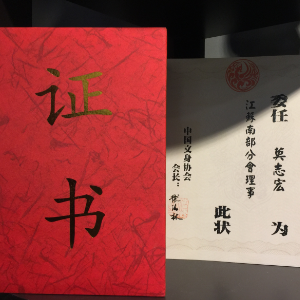 证书
委任 莫志宏 为
江蘇南部分會理事
此状
中国文身协会
会长：